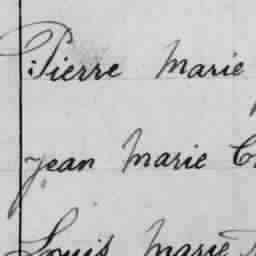 Pierre Marie
Jean Marie
Louis Marie